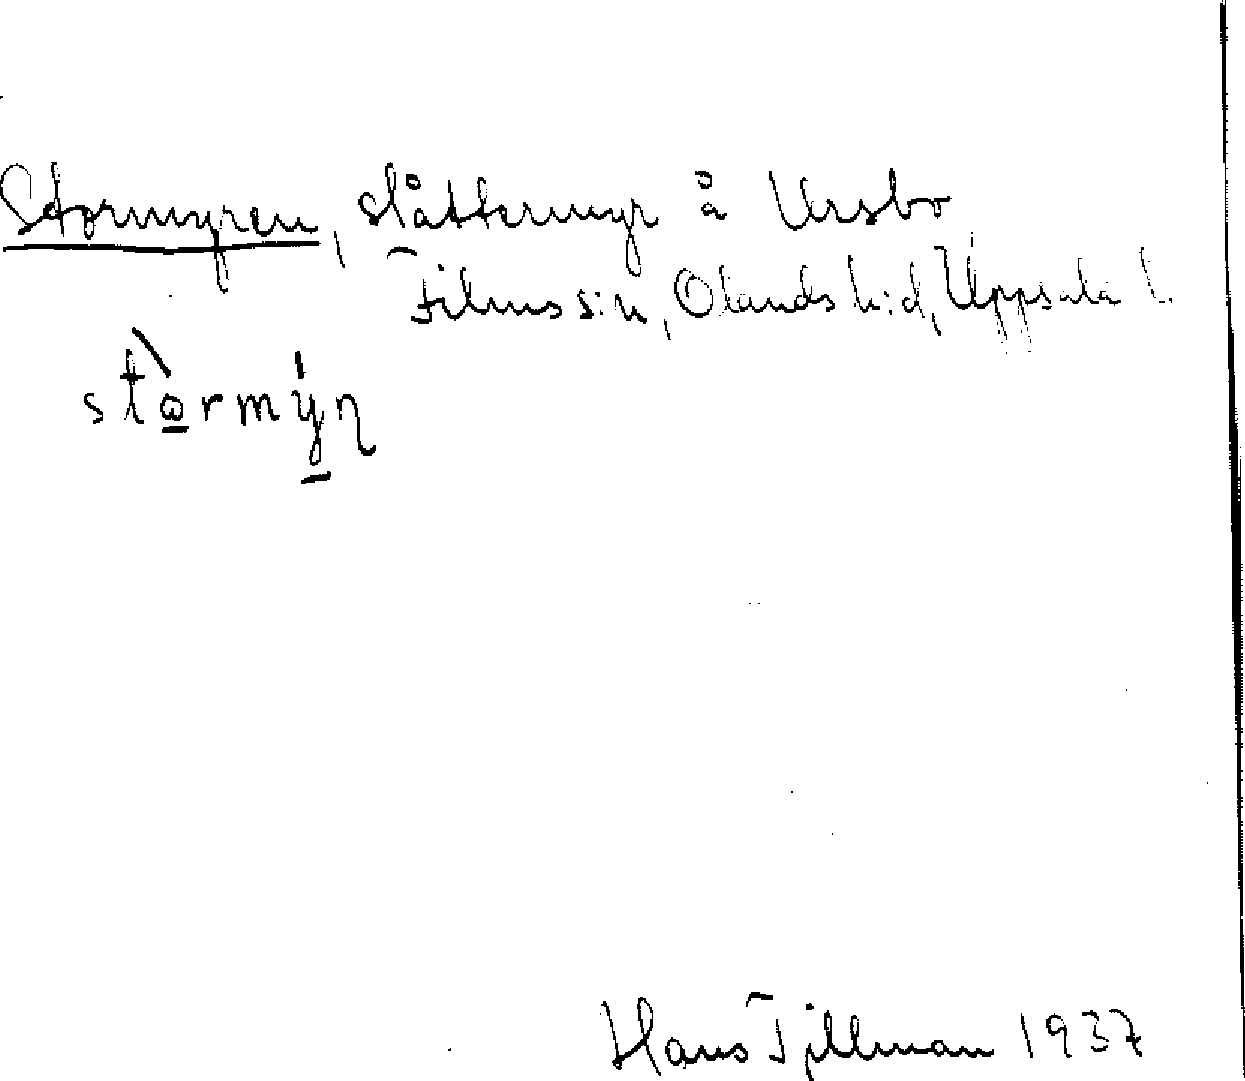 Stormyren, slåttermyr å Ursbo
Films sn, Olands hd, Uppsala l.
stòrmýn
Hans Tjillman 1937